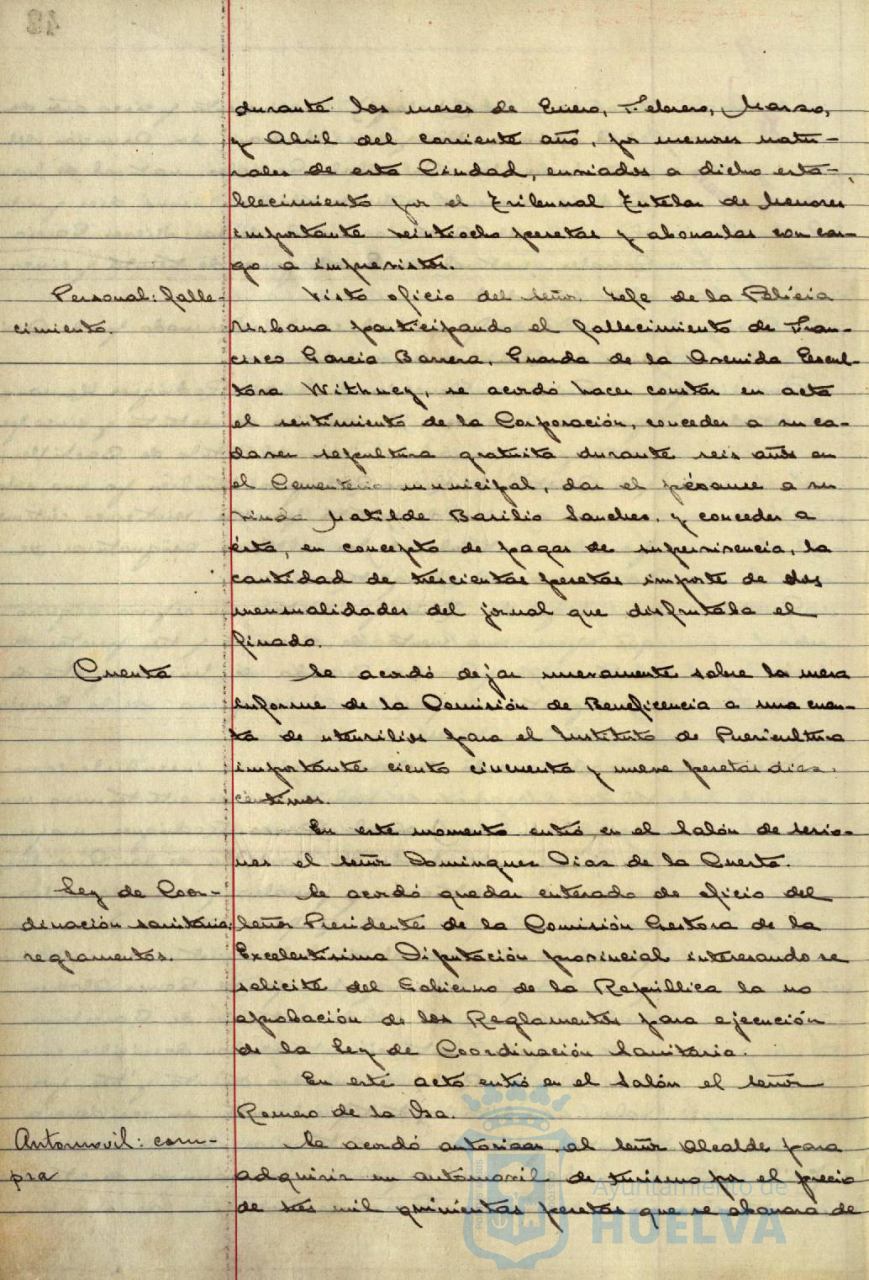 durante los meses de Enero, Febrero, Marzo,
y Abril del corriente año, por menores natu-
rales de esta Ciudad, enviados a dicho esta-
blecimiento por el Tribunal Tutelar de Menores
importante veintiocho pesetas y abonarlas con car-
go a imprevistos.
Personal: falle-
cimiento.
Visto oficio del señor Jefe de la Policia
Urbana participando el fallecimiento de Fran-
cisco Garcia Barrera, Guarda de la Avenida Escul-
tora Withney, se acordó hacer constar en acta
el sentimiento de la Corporación, conceder a su ca-
daver sepultura gratuita durante seis años en
el Cementerio municipal, dar el pésame a su
viuda Matilde Basilio Sanchez, y conceder a
ésta, en concepto de pagas de supervivencia, la
cantidad de trescientas pesetas importe de dos
mensualidades del jornal que disfrutaba el
finado.
Cuenta
Se acordó dejar nuevamente sobre la mesa
informe de la Comisión de Beneficencia a una cuen-
ta de utensilios para el Instituto de Puericultura
importante ciento cincuenta y nueve pesetas diez
céntimos.
En este momento entró en el Salón de sesio-
nes el señor Dominguez Diaz de la Cuesta.
Ley de Coor-
dinación sanitaria:
reglamentos.
Se acordó quedar enterado de oficio del
señor Presidente de la Comisión Gestora de la
Excelentisima Diputación provincial interesando se
solicite del Gobierno de la República la no
aprobación de los Reglamentos para ejecución
de la Ley de Coordinación Sanitaria.
En este acto entró en el Salón el señor
Romero de la Osa.
Automovil: com-
pra
Se acordó autorizar al señor Alcalde para
adquirir un automovil de turismo por el precio
de tres mil quinientas pesetas que se abonara de
Ayuntamiento de
HUELVA